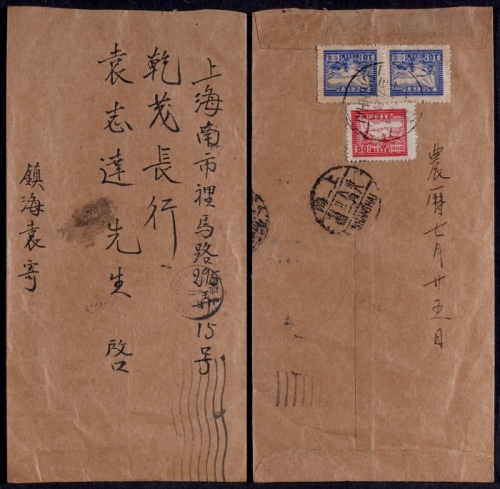 上海南市裡馬路295弄15号
乾茂長行
袁志達先生 啓
鎮海袁寄
農曆七月廿五日
上海
SHANGHAI